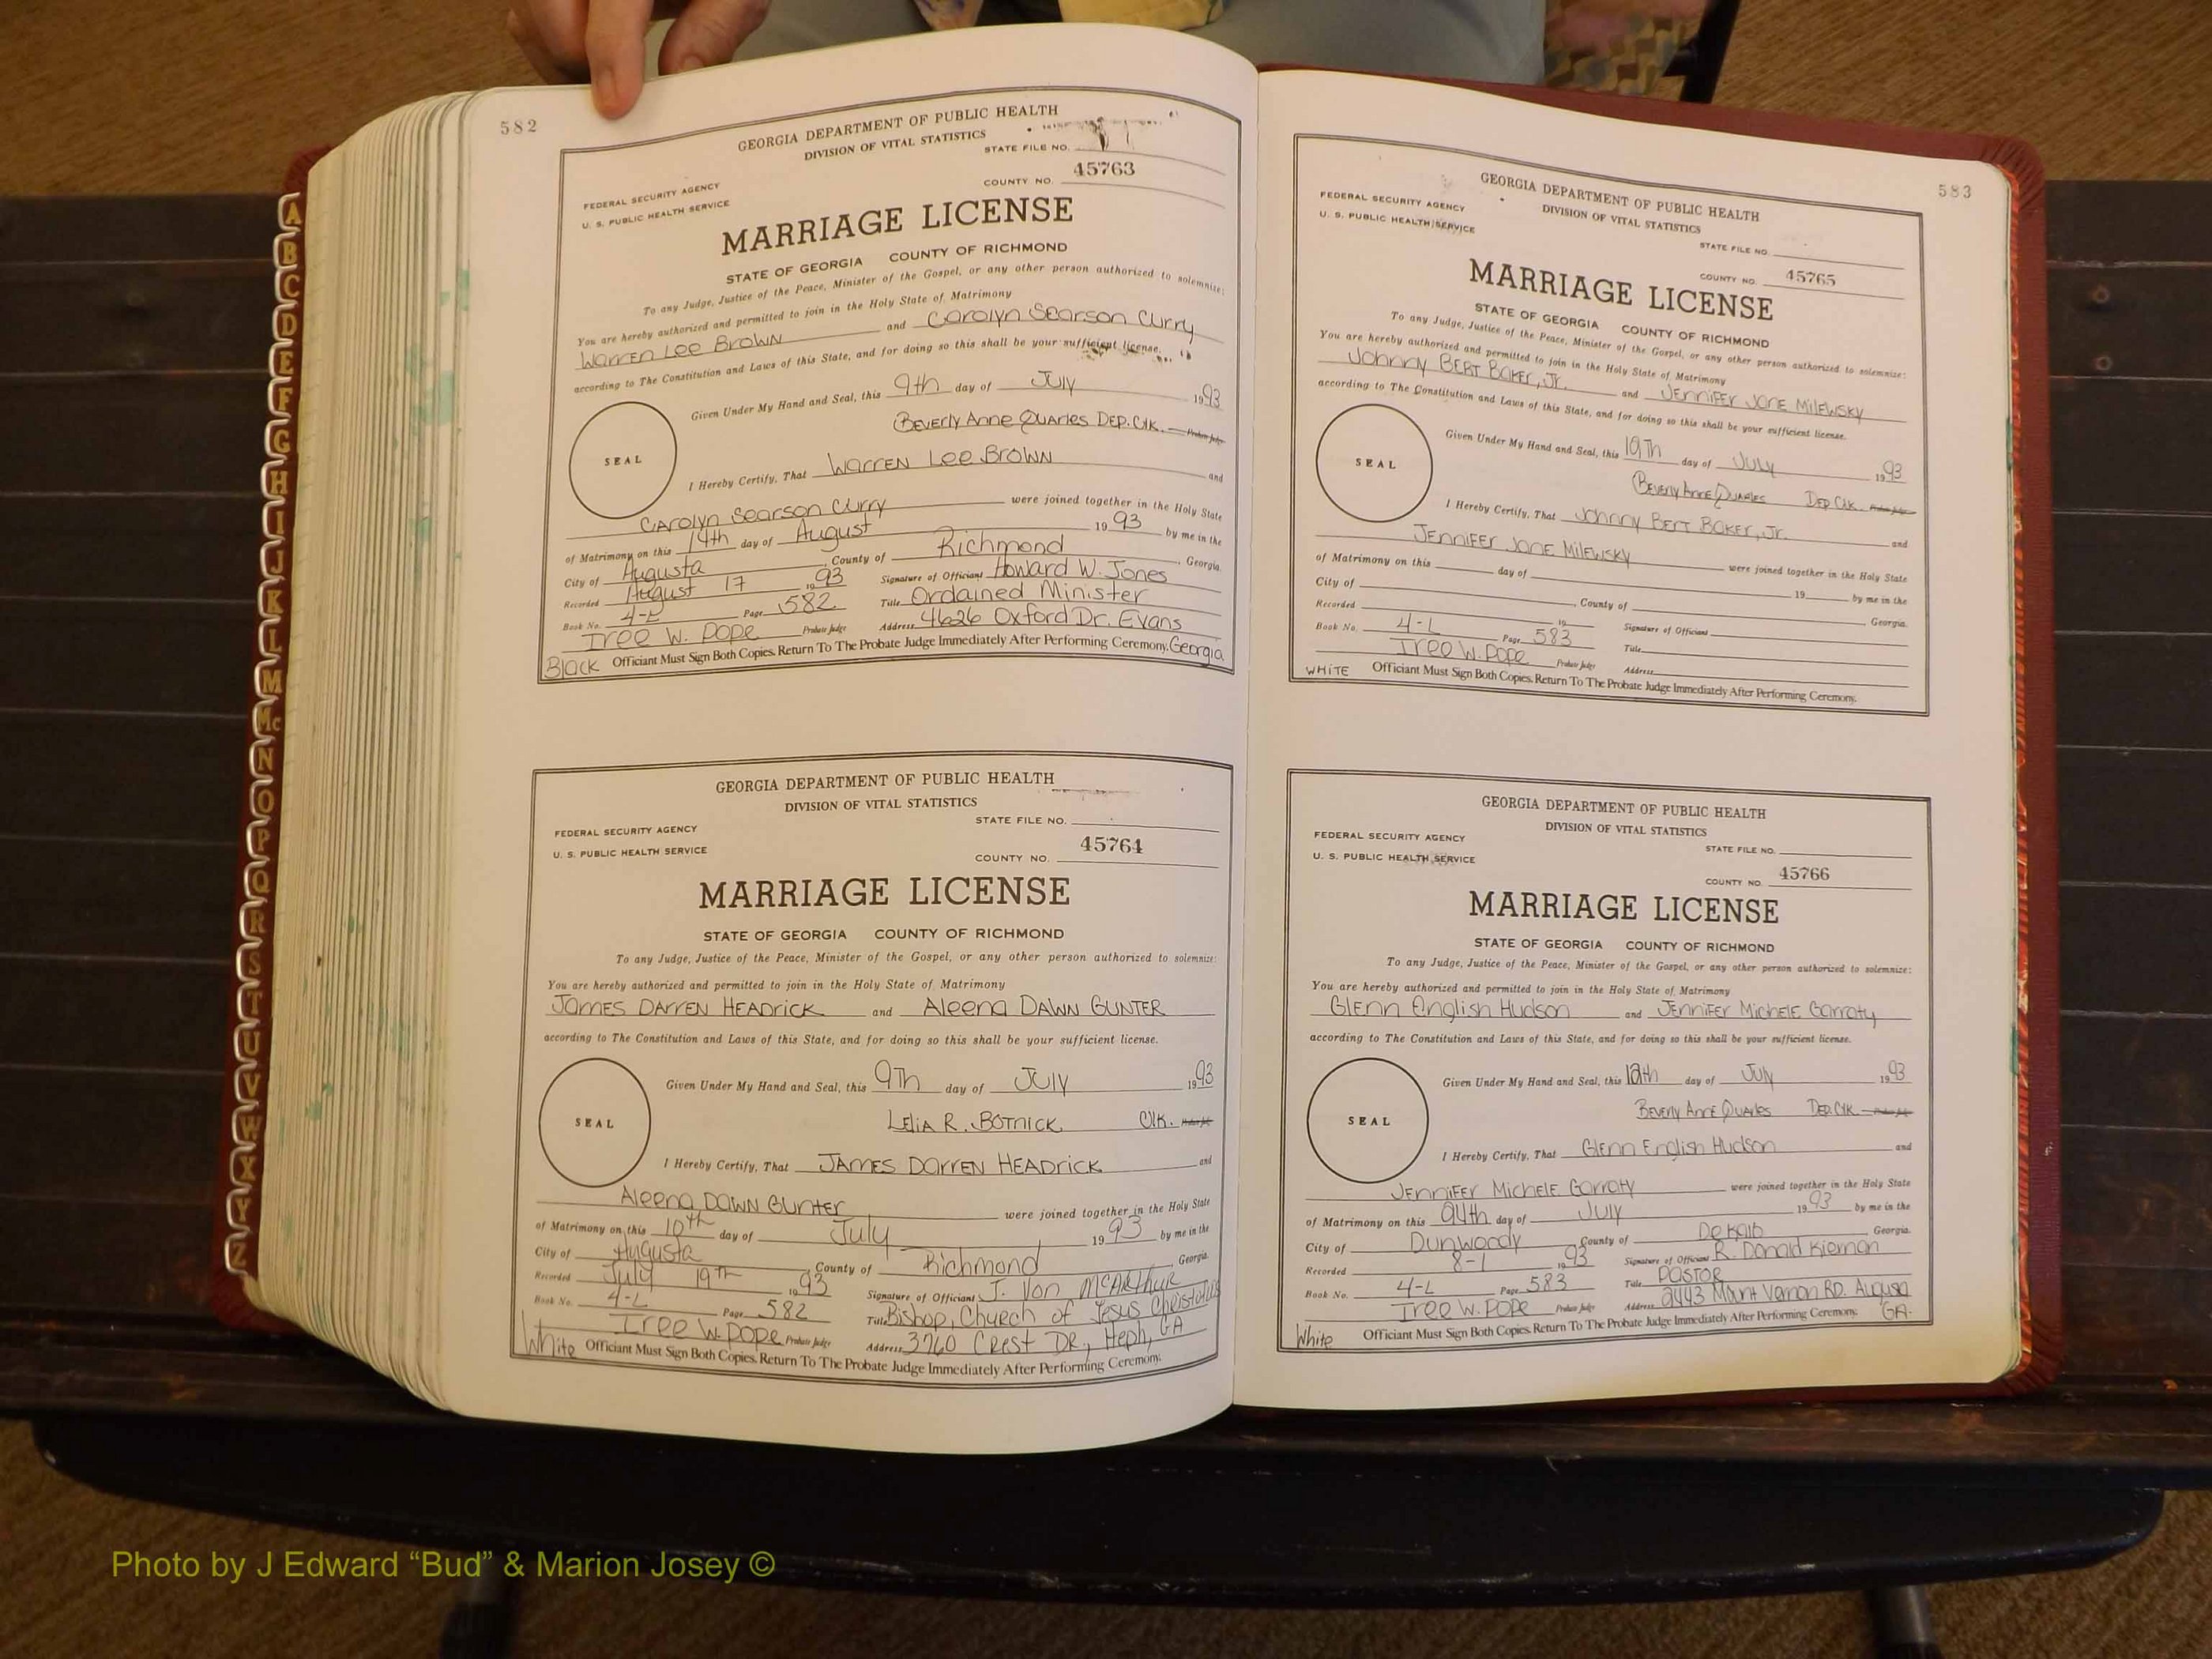 582
GEORGIA DEPARTMENT OF PUBLIC HEALTH
DIVISION OF VITAL STATISTICS
STATE FILE NO.
FEDERAL SECURITY AGENCY
U. S. PUBLIC HEALTH SERVICE
COUNTY NO. 45763
MARRIAGE LICENSE
STATE OF GEORGIA COUNTY OF RICHMOND
To any Judge, Justice of the Peace, Minister of the Gospel, or any other person authorized to solemnize:
You are hereby authorized and permitted to join in the Holy State of Matrimony
Warren Lee Brown and Carolyn Searson Curry
according to The Constitution and Laws of this State, and for doing so this shall be your sufficient license.
Given Under My Hand and Seal, this 9th day of July 1993
Beverly Anne Quarles Dep. Clk. Probate Judge
SEAL
I Hereby Certify, That Warren Lee Brown and
Carolyn Searson Curry were joined together in the Holy State
of Matrimony on this 14th day of August 1993 by me in the
City of Augusta, County of Richmond, Georgia.
Recorded August 17 1993 Signature of Officiant Howard W. Jones
Book No. 4-L Page 582 Title Ordained Minister
Iree W. Pope Probate Judge Address 4626 Oxford Dr. Evans
Black Officiant Must Sign Both Copies. Return To The Probate Judge Immediately After Performing Ceremony. Georgia
GEORGIA DEPARTMENT OF PUBLIC HEALTH
DIVISION OF VITAL STATISTICS
STATE FILE NO.
FEDERAL SECURITY AGENCY
U. S. PUBLIC HEALTH SERVICE
COUNTY NO. 45764
MARRIAGE LICENSE
STATE OF GEORGIA COUNTY OF RICHMOND
To any Judge, Justice of the Peace, Minister of the Gospel, or any other person authorized to solemnize:
You are hereby authorized and permitted to join in the Holy State of Matrimony
James Darren Headrick and Aleena Dawn Gunter
according to The Constitution and Laws of this State, and for doing so this shall be your sufficient license.
Given Under My Hand and Seal, this 9th day of July 1993
Lelia R. Botnick Clk. Probate Judge
SEAL
I Hereby Certify, That James Darren Headrick and
Aleena Dawn Gunter were joined together in the Holy State
of Matrimony on this 10th day of July 1993 by me in the
City of Augusta, County of Richmond Georgia.
Recorded July 19th 1993 Signature of Officiant J. Von McArthur
Book No. 4-L Page 582 Title Bishop, Church of Jesus Christ
Iree W. Pope Probate Judge Address 3760 Crest Dr., Heph, GA
White Officiant Must Sign Both Copies. Return To The Probate Judge Immediately After Performing Ceremony.
583
GEORGIA DEPARTMENT OF PUBLIC HEALTH
DIVISION OF VITAL STATISTICS
FEDERAL SECURITY AGENCY
U. S. PUBLIC HEALTH SERVICE
STATE FILE NO.
COUNTY NO. 45765
MARRIAGE LICENSE
STATE OF GEORGIA COUNTY OF RICHMOND
To any Judge, Justice of the Peace, Minister of the Gospel, or any other person authorized to solemnize:
You are hereby authorized and permitted to join in the Holy State of Matrimony
Johnny Bert Baker, Jr. and Jennifer Jane Milewsky
according to The Constitution and Laws of this State, and for doing so this shall be your sufficient license.
Given Under My Hand and Seal, this day of July 1993
Beverly Anne Quarles Dep. Clk. Probate Judge
SEAL
I Hereby Certify, That Johnny Bert Baker, Jr. and
Jennifer Jane Milewsky were joined together in the Holy State
of Matrimony on this day of 19 by me in the
City of , County of Georgia.
Recorded 19 Signature of Officiant
Book No. 4-L Page 583 Title
Iree W. Pope Probate Judge Address
White Officiant Must Sign Both Copies. Return To The Probate Judge Immediately After Performing Ceremony.
GEORGIA DEPARTMENT OF PUBLIC HEALTH
DIVISION OF VITAL STATISTICS
FEDERAL SECURITY AGENCY
STATE FILE NO.
U. S. PUBLIC HEALTH SERVICE
COUNTY NO. 45766
MARRIAGE LICENSE
STATE OF GEORGIA COUNTY OF RICHMOND
To any Judge, Justice of the Peace, Minister of the Gospel, or any other person authorized to solemnize:
You are hereby authorized and permitted to join in the Holy State of Matrimony
Glenn English Hudson and Jennifer Michele Garraty
according to The Constitution and Laws of this State, and for doing so this shall be your sufficient license.
Given Under My Hand and Seal, this 12th day of July 1993
Beverly Anne Quarles Dep. Clk. Probate Judge
SEAL
I Hereby Certify, That Glenn English Hudson and
Jennifer Michele Garraty were joined together in the Holy State
of Matrimony on this 24th day of July 1993 by me in the
City of Dunwoody, County of DeKalb Georgia.
Recorded 8-1 1993 Signature of Officiant R. Donald Kiernan
Book No. 4-L Page 583 Title Pastor
Iree W. Pope Probate Judge Address 2443 Mount Vernon Rd. Augusa
White Officiant Must Sign Both Copies. Return To The Probate Judge Immediately After Performing Ceremony. GA.
A
B
C
D
E
F
G
H
I
J
K
L
M
Mc
N
O
P
Q
R
S
T
U
V
W
X
Y
Z
Photo by J Edward “Bud” & Marion Josey ©